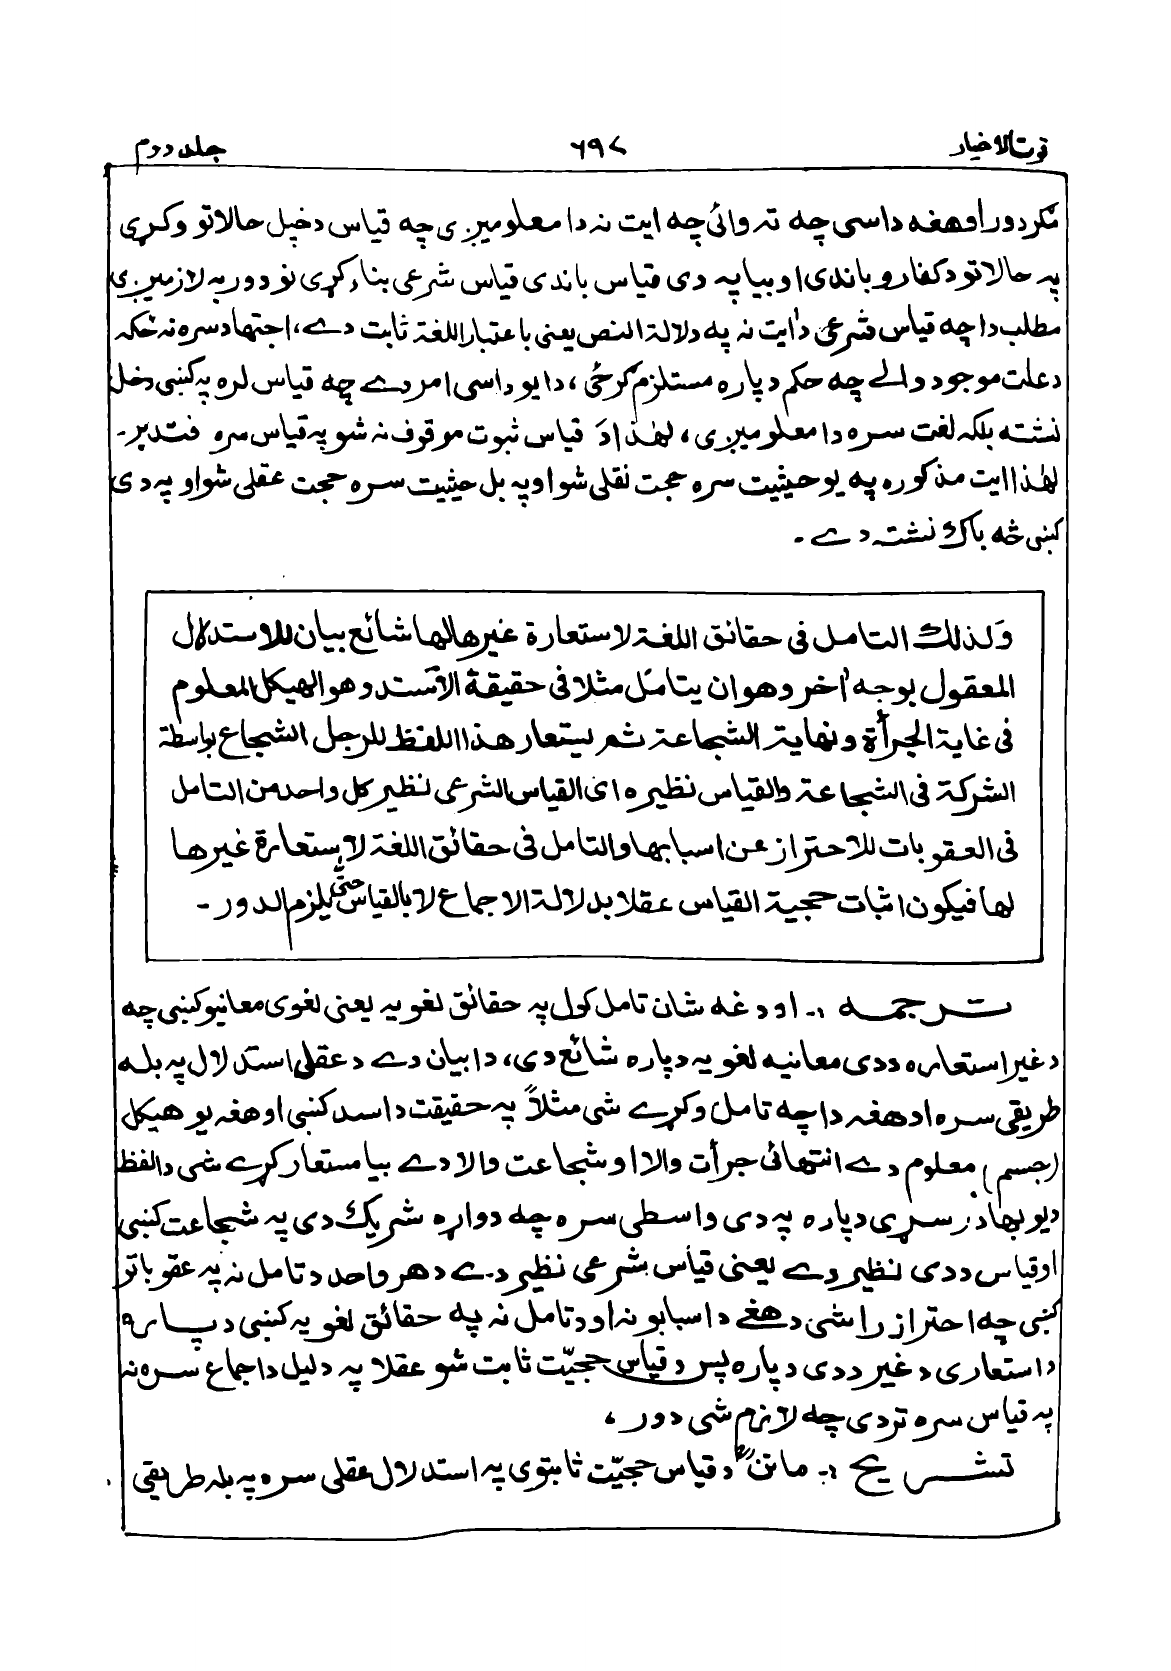 قوت الاخیار ۶۹۷ جلد دوم
مگر دور او هغه داسی چه ته وائی چه ایت نه دا معلومیږی چه قیاس دخپل حالاتو وکړی
په حالاتو دکفارو باندی او بیا په دی قیاس باندی قیاس شرعی بناء کړی نو دور به لازمیږی
مطلب دا چه قیاس شرعی دایت نه په دلالة النص یعنی باعتبار اللغة ثابت دے، اجتهاد سره نه ځکه
دعلت موجود والے چه حکم دپاره مستلزم گرځی، دا یو داسی امر دے چه قیاس لره په کښی دخل
نشته بلکه لغت سره دا معلومیږی، لهٰذا دَ قیاس ثبوت موقوف نه شو په قیاس سره فتدبر۔
لهٰذا ایت مذکوره په یو حیثیت سره حجت نقلی شو او په بل حیثیت سره حجت عقلی شو او په دی
کښی څه باک نشته دے۔
وَلذلك التامل فی حقائق اللغة لاستعارة غیرها لها شائع بیان للاستدلال
المعقول بوجه اٰخر وهو ان یتامل مثلا فی حقیقة الاسد وهو الهیکل المعلوم
فی غایة الجرأة ونهایة الشجاعة ثم یستعار هذا اللفظ للرجل الشجاع بواسطة
الشرکة فی الشجاعة والقیاس نظیره ای القیاس الشرعی نظیر کل واحد من التامل
فی العقوبات للاحتراز عن اسبابها والتامل فی حقائق اللغة لاستعارة غیرها
لها فیکون اثبات حجیة القیاس عقلا بدلالة الاجماع لا بالقیاس حتی یلزم الدور۔
ترجمه :۔ او دغه شان تامل کول په حقائق لغویه یعنی لغوی معانیو کښی چه
دغیر استعاره ددی معانیه لغویه دپاره شائع دی، دا بیان دے دعقلی استدلال په بله
طریقی سره او هغه دا چه تامل وکړے شی مثلاً په حقیقت داسد کښی او هغه یو هیکل
(جسم) معلوم دے انتهائی جرأت والا او شجاعت والا دے بیا مستعار کړے شی دا لفظ
دیو بهادر سړی دپاره په دی واسطی سره چه دواړه شریک دی په شجاعت کښی
او قیاس ددی نظیر دے یعنی قیاس شرعی نظیر دے دهر واحد دتامل نه په عقوباتو
کښی چه احتراز راشی دهغے داسبابو نه او دتامل نه په حقائق لغویه کښی دپاره
داستعاری دغیر ددی دپاره پس دقیاس حجیّت ثابت شو عقلا په دلیل داجماع سره نه
په قیاس سره تردی چه لازم شی دور،
تشریح :۔ ماتنؒ دقیاس حجیّت ثابتوی په استدلال عقلی سره په بله طریقی